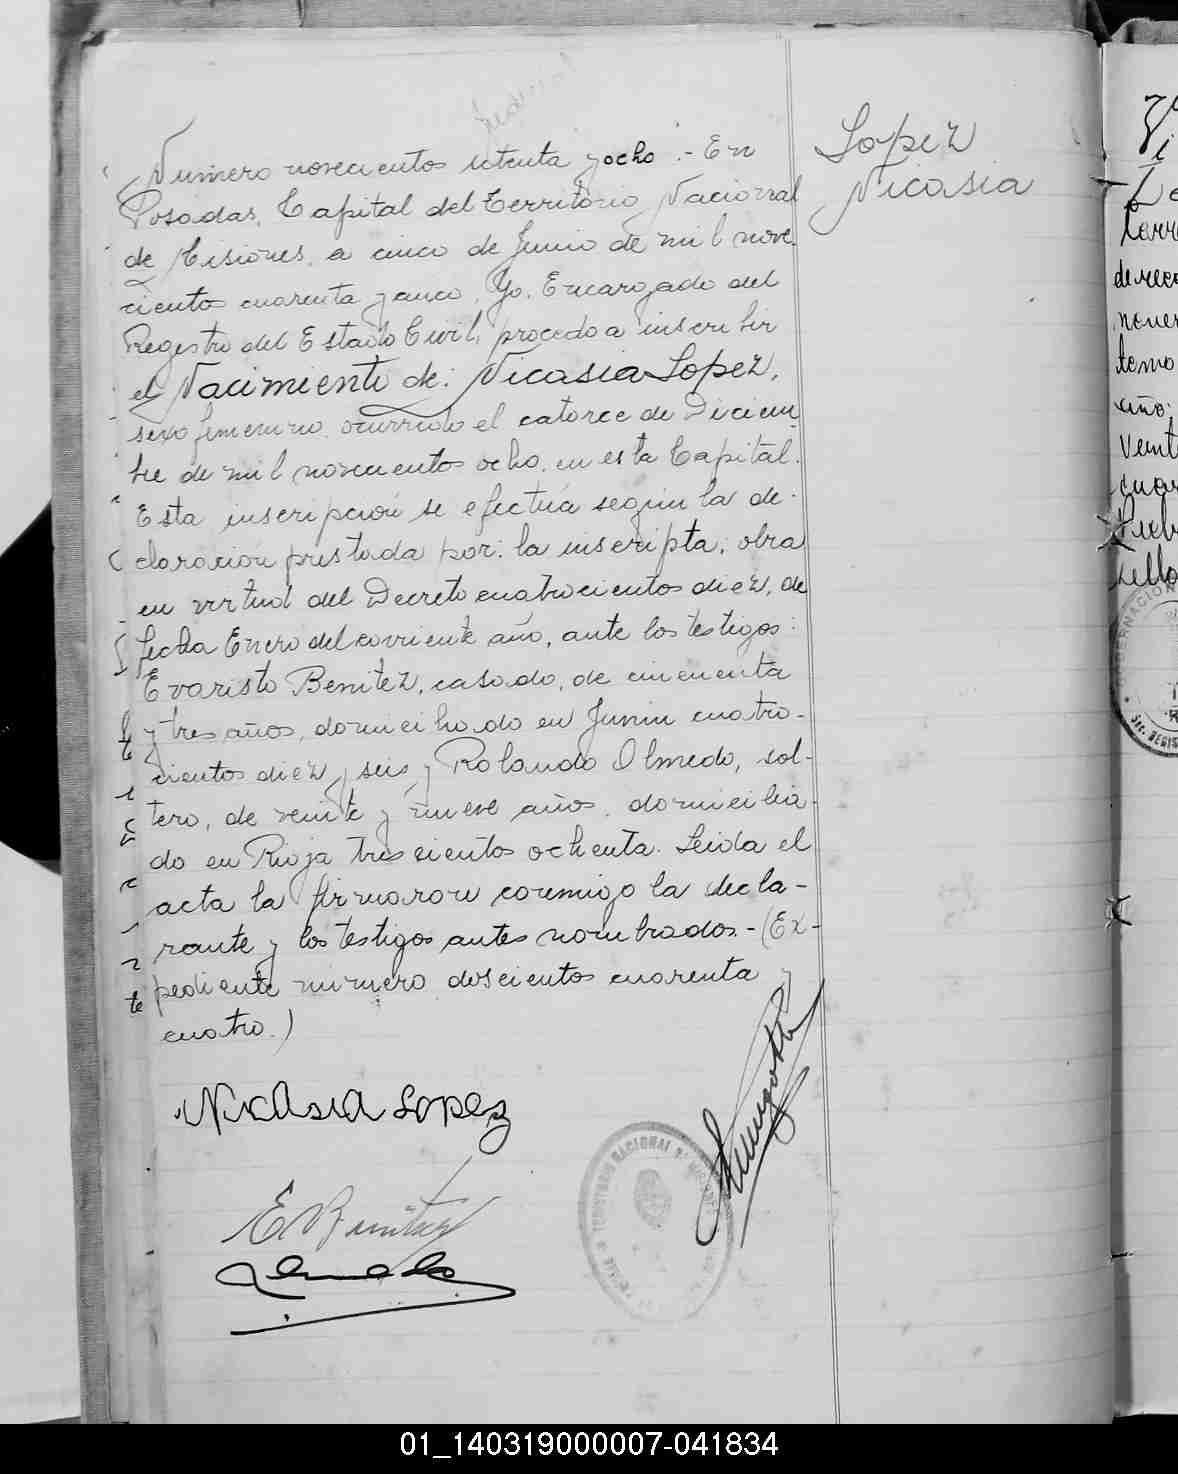 Lopez
Nicasia
Numero novecientos setenta y ocho.- En
Posadas, Capital del Territorio Nacional
de Misiones, a cinco de Junio de mil nove-
cientos cuarenta y cinco, Yo, Encargado del
Registro del Estado Civil, procedo a inscribir
el Nacimiento de: Nicasia Lopez,
sexo femenino, ocurrido el catorce de Diciem
bre de mil novecientos ocho, en esta Capital.
Esta inscripción se efectúa según la de-
claración prestada por: la inscripta; obra
en virtud del Decreto cuatrocientos diez, de
fecha Enero del corriente año, ante los testigos:
Evaristo Benitez, casado, de cincuenta
y tres años, domiciliado en Junin cuatro-
cientos diez y seis, y Rolando Olmedo, sol-
tero, de veinte y nueve años, domicilia-
do en Rioja trescientos ochenta. Leida el
acta la firmaron conmigo la decla-
rante y los testigos antes nombrados.-(Ex-
pediente número doscientos cuarenta y
cuatro.)
Nicasia Lopez
E Benitez
Olmedo
TERRITORIO NACIONAL DE MISIONES
01_140319000007-041834